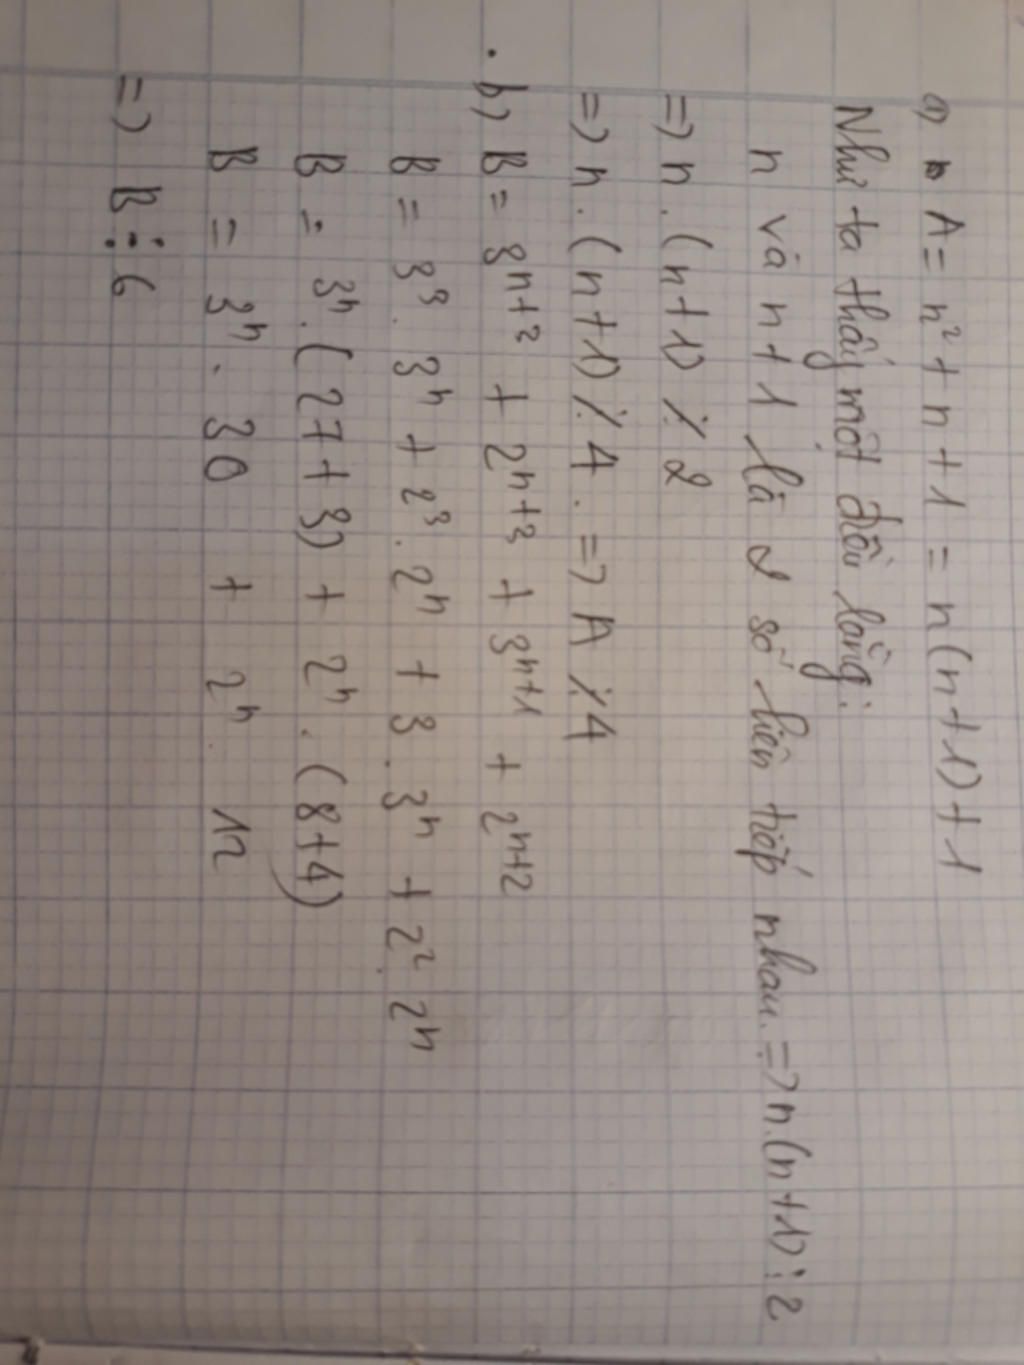 a) A = n² + n + 1 = n(n+1)+1
Như ta thấy một điều rằng:
n và n+1 là 2 số liên tiếp nhau. => n.(n+1) ⋮ 2
=> n.(n+1) ⋮̸ 2
=> n.(n+1) ⋮̸ 4. => A ⋮̸ 4
b) B = 3ⁿ⁺³ + 2ⁿ⁺³ + 3ⁿ⁺¹ + 2ⁿ⁺²
B = 3³. 3ⁿ + 2³. 2ⁿ + 3. 3ⁿ + 2². 2ⁿ
B = 3ⁿ.(27+3) + 2ⁿ.(8+4)
B = 3ⁿ. 30 + 2ⁿ. 12
=> B ⋮ 6